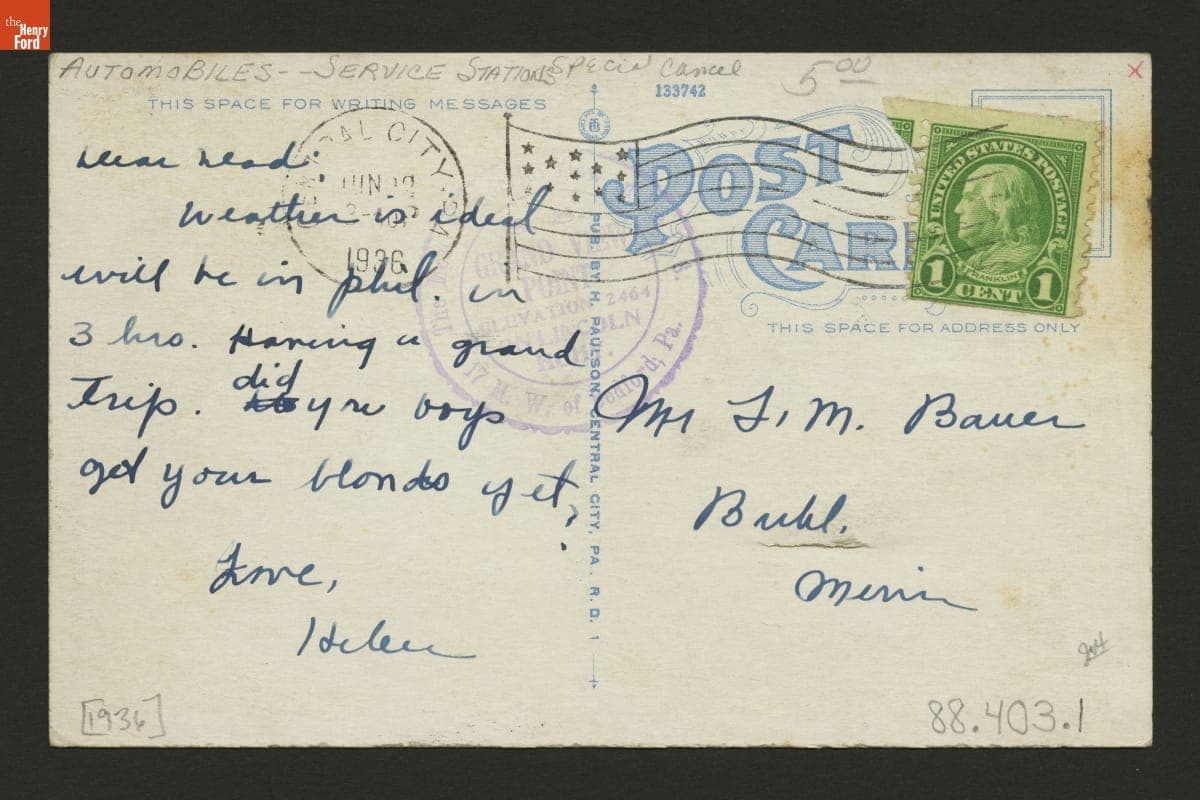 the
Henry
Ford
AUTOMOBILES--SERVICE STATIONS SPECIAL Cancel 5.00
X
133742
THIS SPACE FOR WRITING MESSAGES
POST CARD
UNITED STATES POSTAGE
FRANKLIN
1 CENT 1
CENTRAL CITY, PA
JUN
1936
GRAND VIEW
POINT
ELEVATION 2464
LINCOLN
17 M. W. of Bedford, Pa.
THIS SPACE FOR ADDRESS ONLY
PUB. BY H. PAULSON, CENTRAL CITY, PA. R. D. 1
Dear Dead:
Weather is ideal
will be in phil. in
3 hrs. Having a grand
trip. did yu boys
get your blonds yet?
Love,
Helen
Mr L. M. Bauer
Buhl.
Minn
[1936]
88.403.1